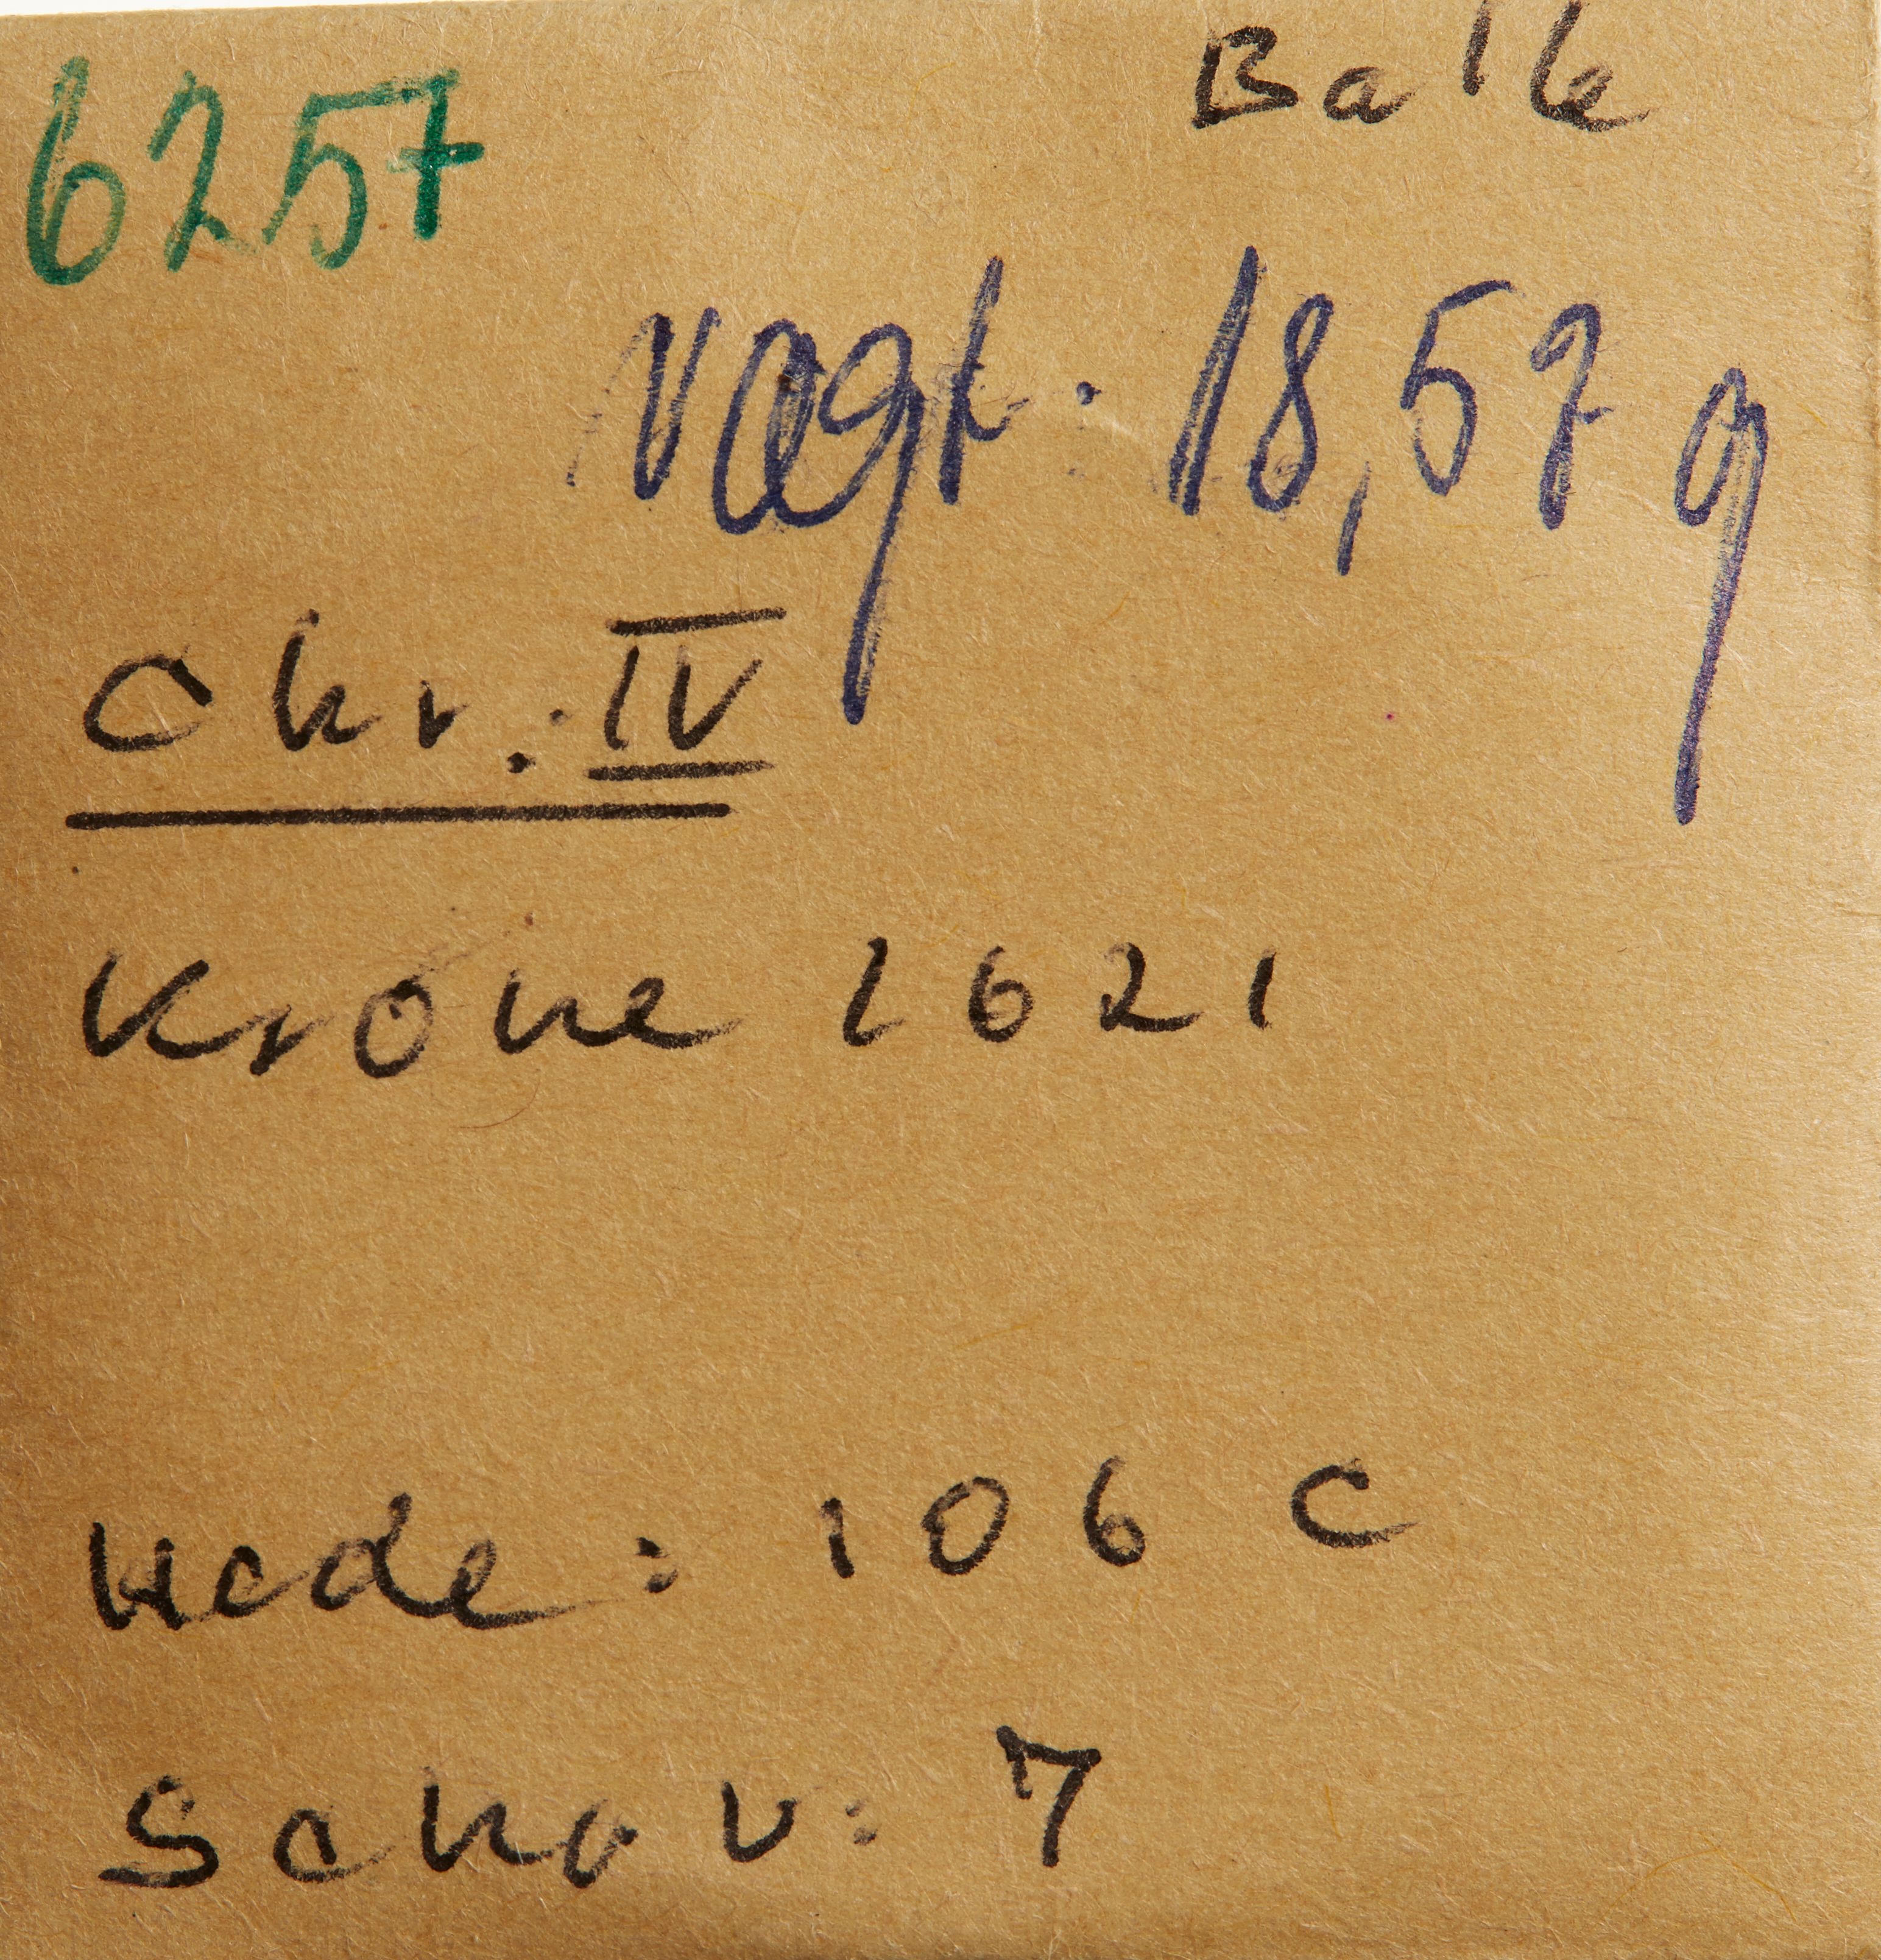 6257 Balle
vægt: 18,57 g
Chr. IV
Krone 1621
Hede: 106 C
Schou: 7